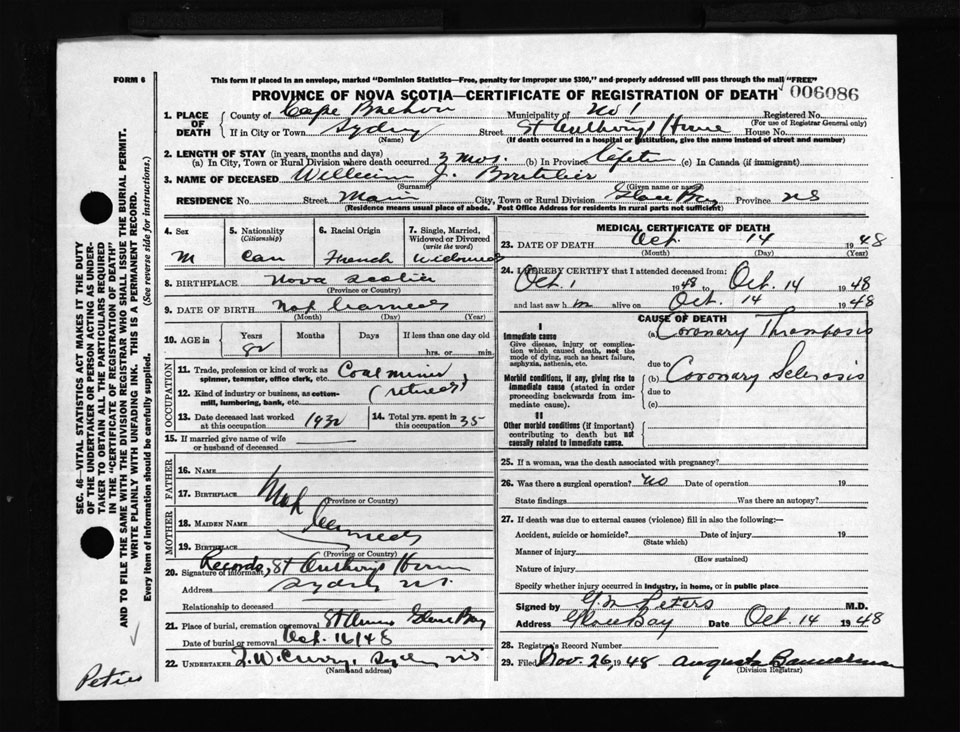 FORM 6
This form if placed in an envelope, marked "Dominion Statistics—Free, penalty for improper use $300," and properly addressed will pass through the mail "FREE"
PROVINCE OF NOVA SCOTIA—CERTIFICATE OF REGISTRATION OF DEATH 006086
1. PLACE OF DEATH
County of Cape Breton Municipality of No 1 Registered No.
(For use of Registrar General only)
If in City or Town Sydney Street St Anthony's Home House No.
(Name) (If death occurred in a hospital or institution, give the name instead of street and number)
2. LENGTH OF STAY (in years, months and days)
(a) In City, Town or Rural Division where death occurred 3 mos. (b) In Province (c) In Canada (if immigrant)
3. NAME OF DECEASED William J. Boutilier
(Surname) (Given name or names)
RESIDENCE No. Street Main City, Town or Rural Division Glace Bay Province NS
(Residence means usual place of abode. Post Office Address for residents in rural parts not sufficient)
4. Sex
M
5. Nationality
(Citizenship)
Can
6. Racial Origin
French
7. Single, Married, Widowed or Divorced
(write the word)
Widowed
8. BIRTHPLACE Nova Scotia
(Province or Country)
9. DATE OF BIRTH Not learned
(Month) (Day) (Year)
10. AGE in Years Months Days If less than one day old
82 hrs. or min.
OCCUPATION
11. Trade, profession or kind of work as spinner, teamster, office clerk, etc. Coal miner
12. Kind of industry or business, as cotton-mill, lumbering, bank, etc. (retired)
13. Date deceased last worked at this occupation 1932
14. Total yrs. spent in this occupation 35
15. If married give name of wife or husband of deceased
FATHER
16. NAME
17. BIRTHPLACE Not learned
(Province or Country)
MOTHER
18. MAIDEN NAME
19. BIRTHPLACE
(Province or Country)
20. Signature of informant Records, St Anthony's Home
Address Sydney N.S.
Relationship to deceased
21. Place of burial, cremation or removal St Annes Glace Bay
Date of burial or removal Oct. 16/48
22. UNDERTAKER T. W. Curry, Sydney NS
(Name and address)
MEDICAL CERTIFICATE OF DEATH
23. DATE OF DEATH Oct. 14 1948
(Month) (Day) (Year)
24. I HEREBY CERTIFY that I attended deceased from:
Oct. 1 1948 to Oct. 14 1948
and last saw h m alive on Oct. 14 1948
CAUSE OF DEATH
I
Immediate cause
Give disease, injury or complication which caused death, not the mode of dying, such as heart failure, asphyxia, asthenia, etc.
(a) Coronary Thrombosis
due to
Morbid conditions, if any, giving rise to immediate cause (stated in order proceeding backwards from immediate cause).
(b) Coronary Sclerosis
due to
(c)
II
Other morbid conditions (if important) contributing to death but not causally related to immediate cause.
25. If a woman, was the death associated with pregnancy?
26. Was there a surgical operation? No Date of operation 19
State findings Was there an autopsy?
27. If death was due to external causes (violence) fill in also the following:—
Accident, suicide or homicide? Date of injury 19
(State which)
Manner of injury
(How sustained)
Nature of injury
Specify whether injury occurred in industry, in home, or in public place
Signed by G. M. Peters M.D.
Address Glace Bay Date Oct. 14 1948
28. Registrar's Record No.
29. Filed Nov. 26, 1948 Augusta Bannerman
(Division Registrar)
SEC. 46—VITAL STATISTICS ACT MAKES IT THE DUTY
OF THE UNDERTAKER OR PERSON ACTING AS UNDER-
TAKER TO OBTAIN ALL THE PARTICULARS REQUIRED
IN THE "CERTIFICATE OF REGISTRATION OF DEATH"
AND TO FILE THE SAME WITH THE DIVISION REGISTRAR WHO SHALL ISSUE THE BURIAL PERMIT.
WRITE PLAINLY WITH UNFADING INK. THIS IS A PERMANENT RECORD.
Every item of information should be carefully supplied. (See reverse side for instructions.)
Peters